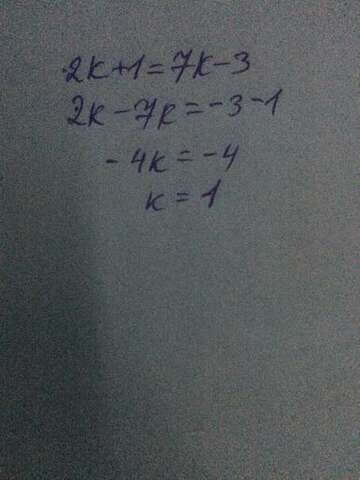 2k+1=7k-3
2k-7k=-3-1
-4k=-4
k=1